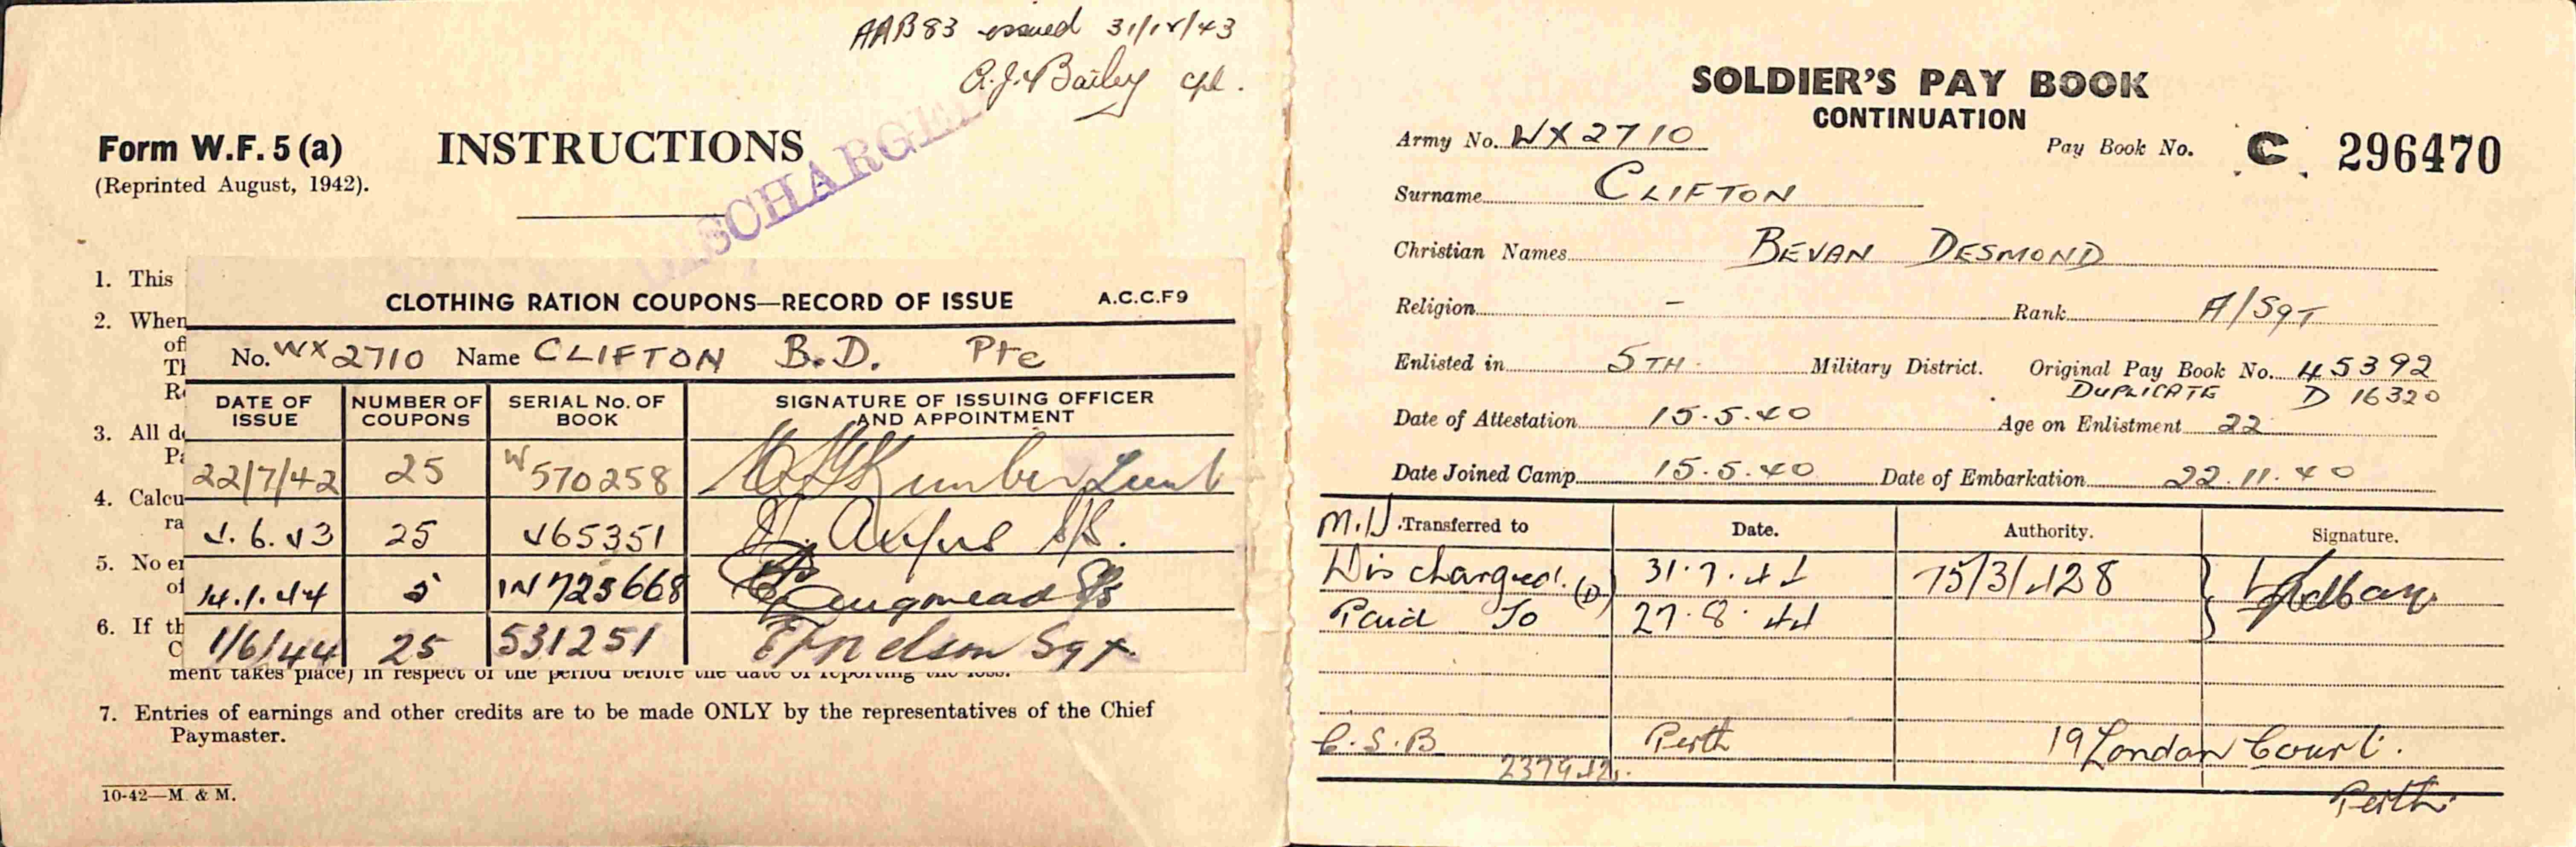 AAB83 issued 31/12/43
A.J. Bailey Cpl.
Form W.F. 5 (a)
(Reprinted August, 1942).
INSTRUCTIONS
DISCHARGED
1. This
2. When
of
Th
Re
3. All de
Pa
4. Calcu
ra
5. No en
of
6. If th
C
CLOTHING RATION COUPONS—RECORD OF ISSUE A.C.C.F9
No. WX 2710 Name CLIFTON B.D. Pte
DATE OF ISSUE NUMBER OF COUPONS SERIAL No. OF BOOK SIGNATURE OF ISSUING OFFICER AND APPOINTMENT
22/7/42 25 W 570258 Lieut
4.6.43 25 465351
14.1.44 5 IN 725668
1/6/44 25 531251 Nelson Sgt.
ment takes place) in respect of the period before the date of reporting the loss.
7. Entries of earnings and other credits are to be made ONLY by the representatives of the Chief
Paymaster.
10-42—M. & M.
SOLDIER'S PAY BOOK
CONTINUATION
Army No. WX 2710
Pay Book No. C. 296470
Surname CLIFTON
Christian Names BEVAN DESMOND
Religion – Rank A/SGT
Enlisted in 5TH. Military District. Original Pay Book No. 45392
DUPLICATE D 16320
Date of Attestation 15.5.40 Age on Enlistment 22
Date Joined Camp 15.5.40 Date of Embarkation 22.11.40
Transferred to Date. Authority. Signature.
Discharged. (D) 31.7.44 75/3/428
Paid To 27.8.44
C.S.B Perth 19 London Court.
Perth.